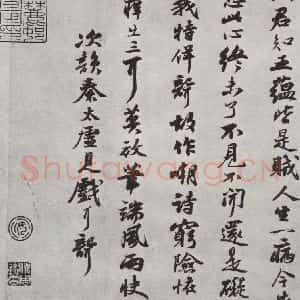 君知五蘊皆是賊人生一病今
恐此心終未了不見不聞還是礙
我特佯聾故作嘲詩窮險怪
痒出三耳莫放筆端風雨快
次韻秦太虛見戲耳聾
Shufawang.CN